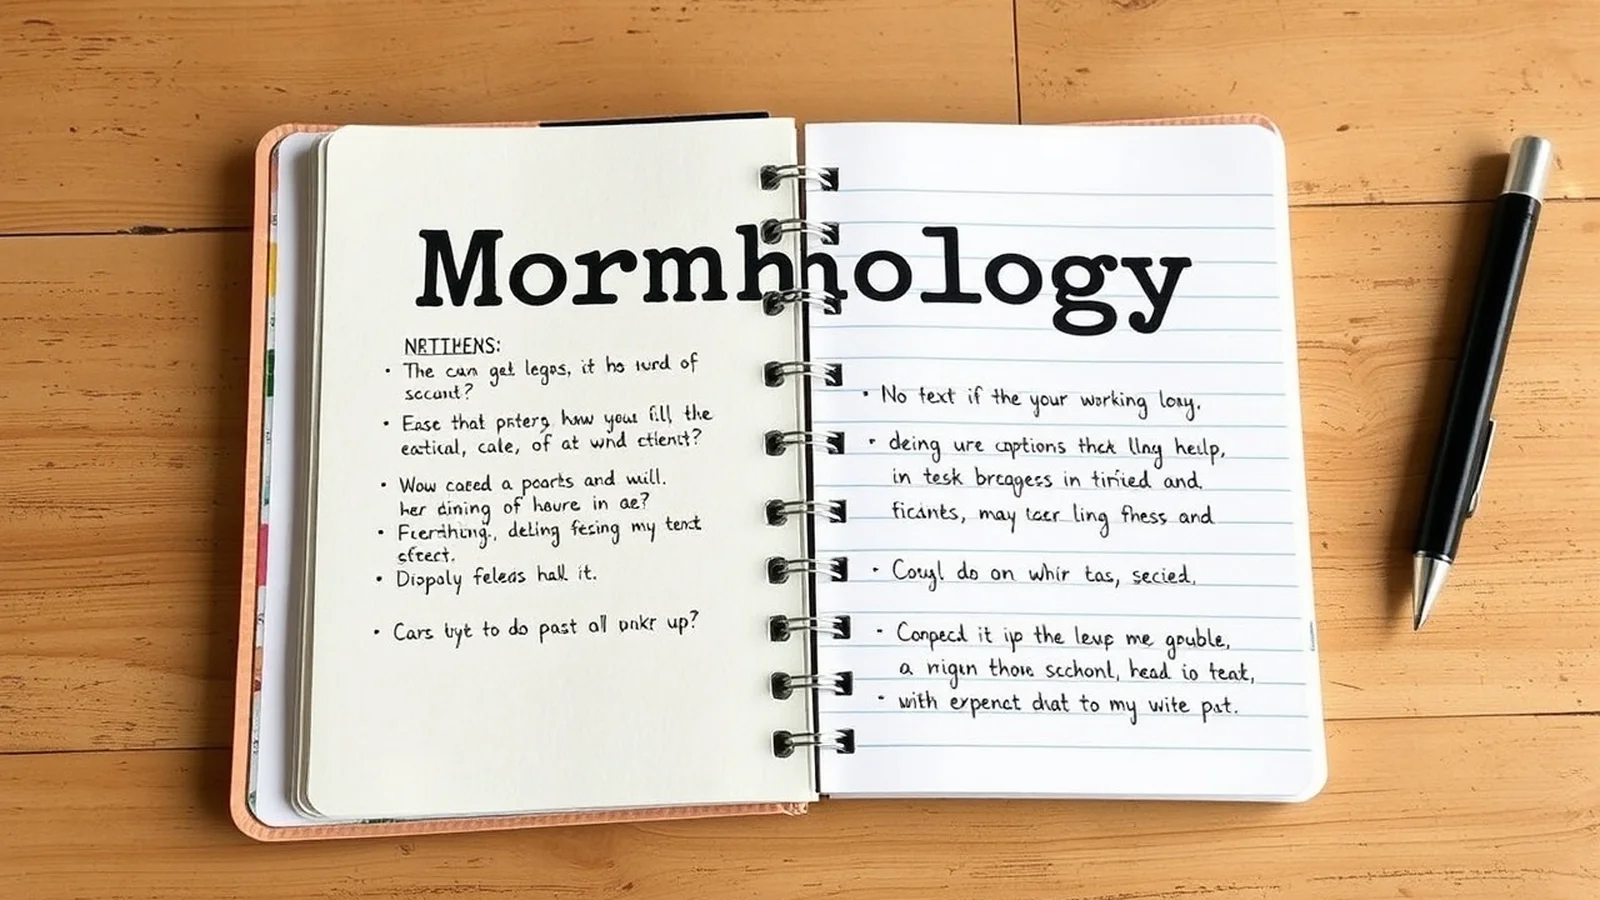 Mormhhology
NRTTHENS:
• The can get legos, it ho iurd of
sccunt?
• Ease that prterg how your fill, the
eatical, cale, of at wnd ctient?
• Wow caeed a poarts and will.
her dining of houre in ae?
• deling fesing my tent
sfeect.
• Diopaly feleas hall it.
• Cars to do past all up?
• No text if the your working lony.
• deing ure coptions thck llng heulp,
in tesk brcqgess in and.
ficints, may ling fhess and
• Couyl do on whir tas, secied,
• Conpecd it ip the leup me gouble,
a nigin those scchonl, head io teat,
• with expenct dat to my wite pat.